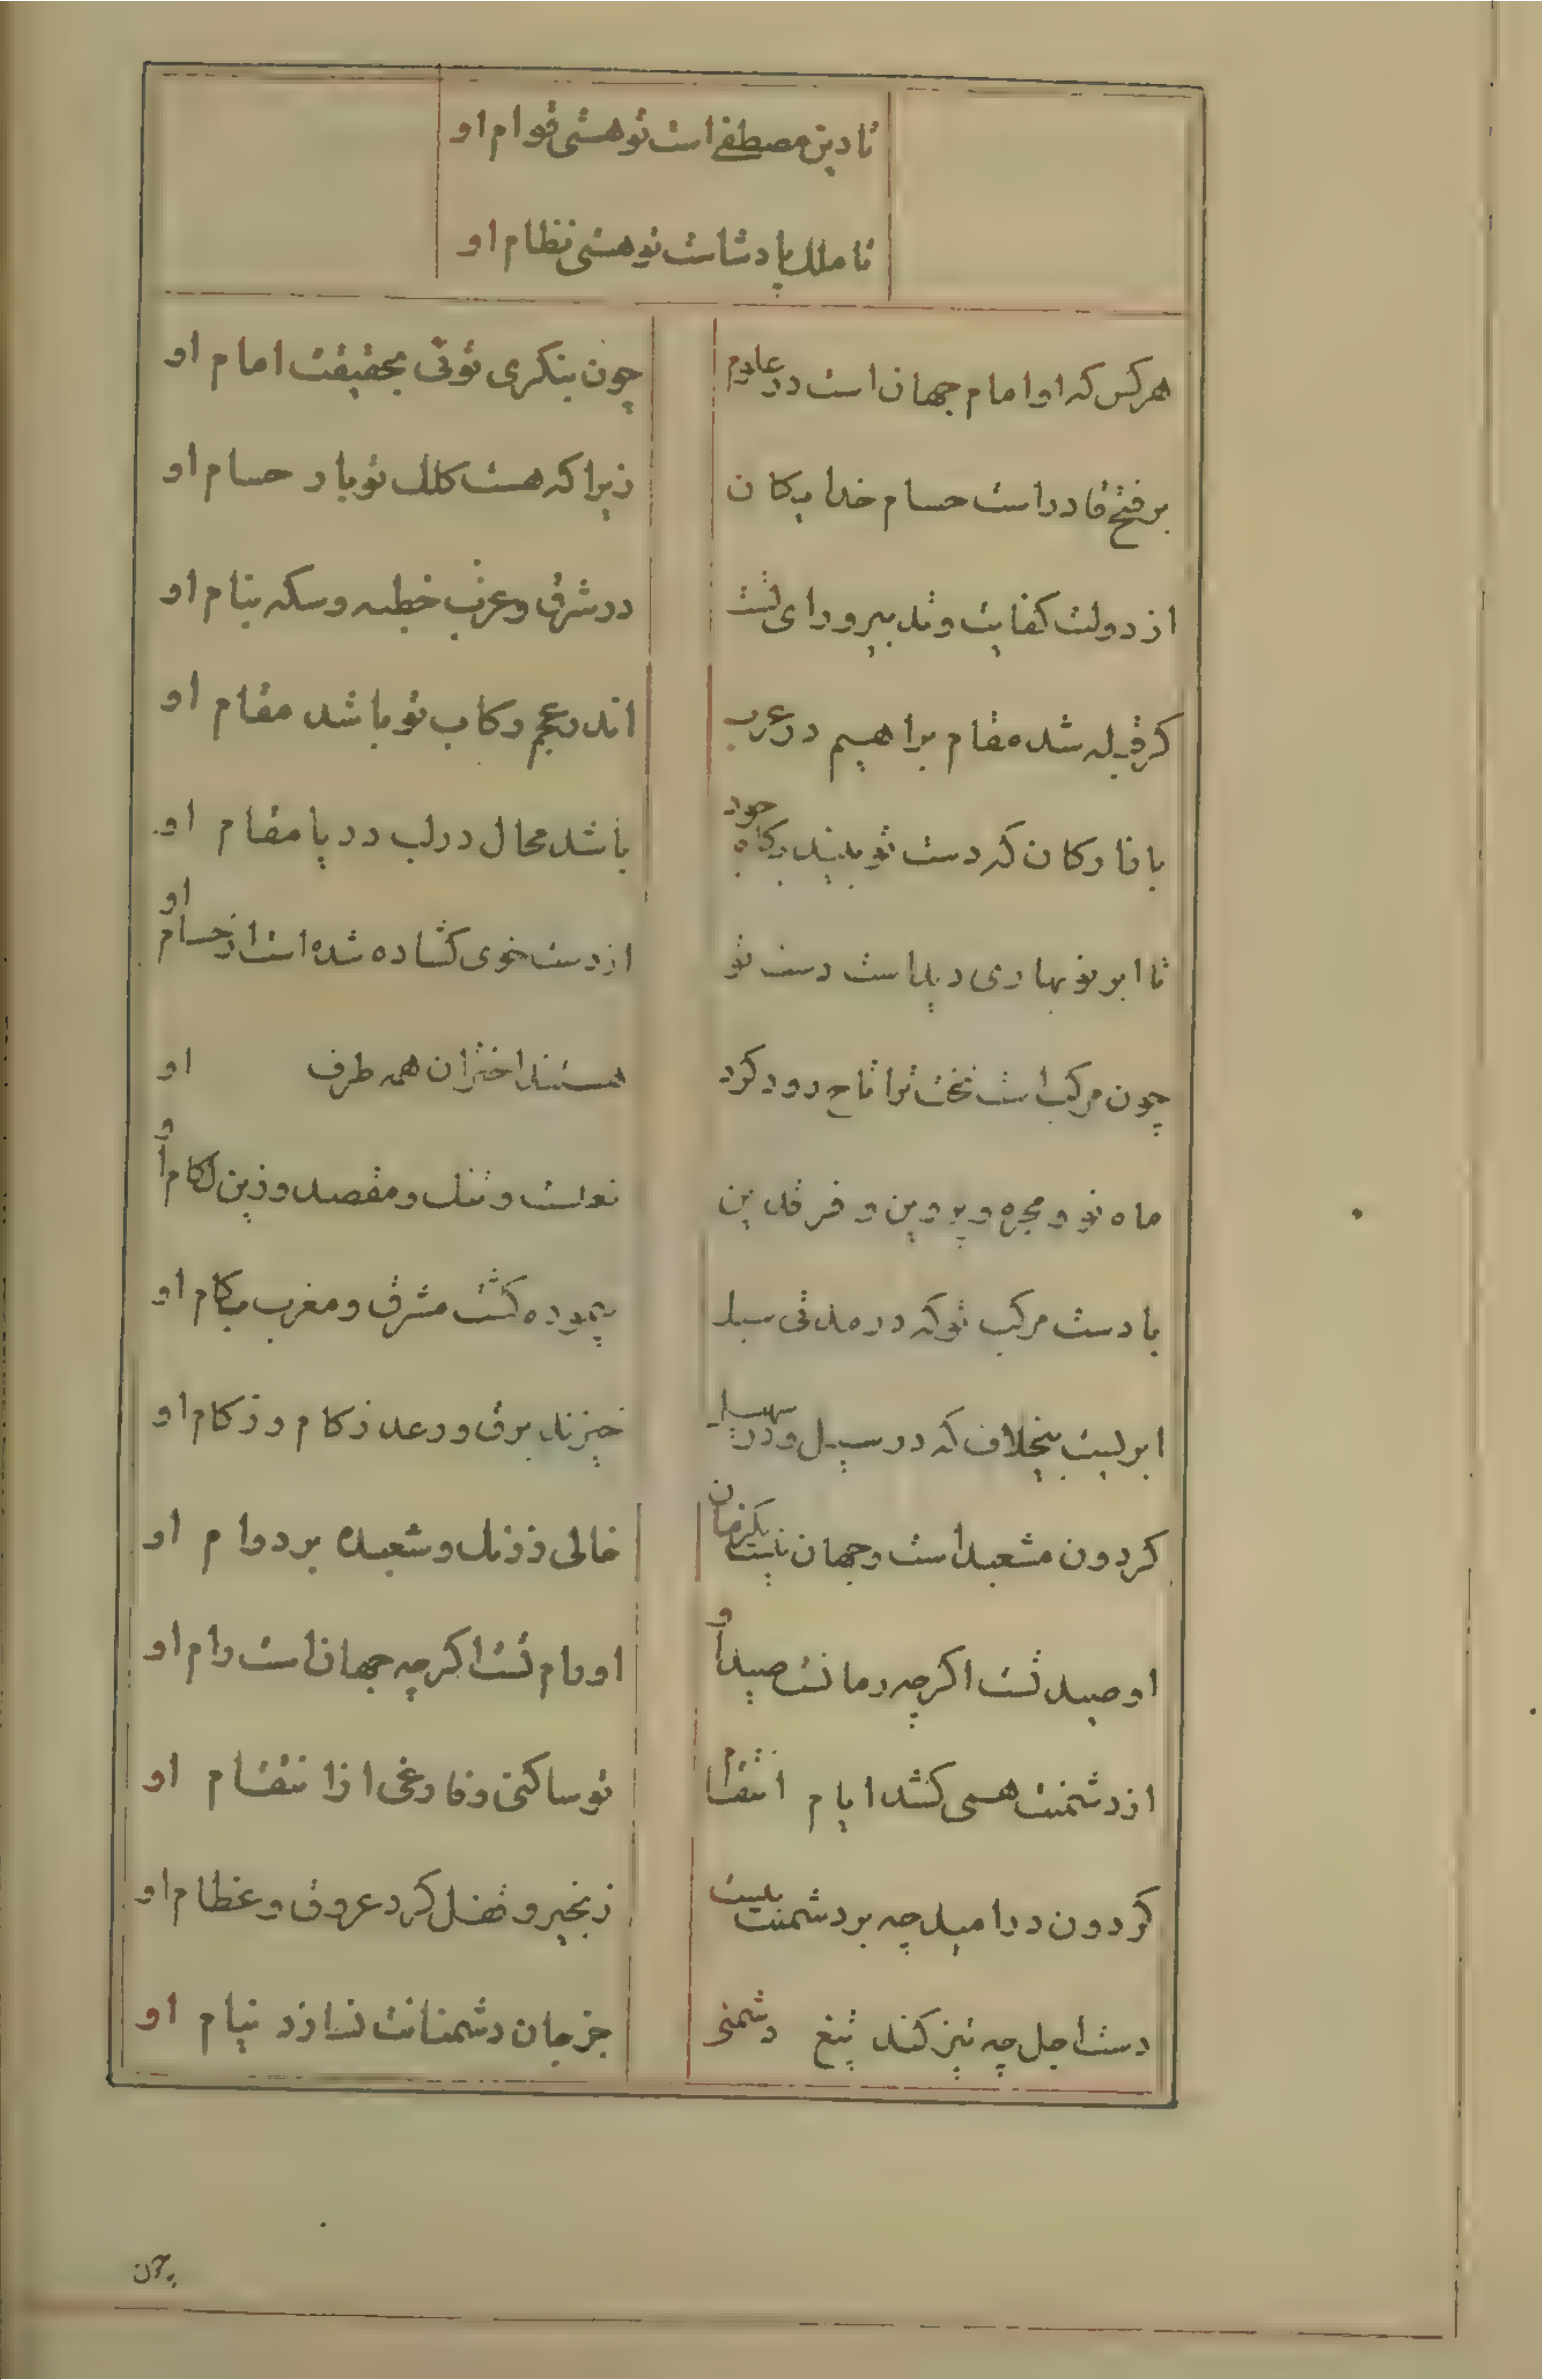 تا دین مصطفی است تو هستی قوام او
تا ملک پادشاست تو هستی نظام او
هر کس که او امام جهان است در علوم
چون بنکری توئی بحقیقت امام او
بر فتح قادر است حسام خدایکان
زیرا که هست کلک تو یار حسام او
از دولت کفایت و تدبیر و رای تست
در شرق و غرب خطبه و سکه بنام او
کر قبله شد مقام براهیم در عرب
اندر عجم رکاب تو باشد مقام او
با نار کان که دست تو بیند بکاه جود
باشد محال در لب دریا مقام او
تا ابر نو بهاری دید است دست تو
از دست خوی کشاده شده است از حسام او
چون مرکب است تخت ترا تاج رود کرد
هستند اختران همه طرف او
ماه نو و مجره و پروین و فرقدین
نعلست و تنک و مقصد و زین لکام او
باد ست مرکب تو که در مدتی
پیموده کشت مشرق و مغرب بکام او
ابر لیست بیخلاف که در سیل و در
خیزند برق و رعد ز کام و زکام او
کردون مشعبد است و جهان نیست یکزمان
خالی ز زنک و شعبده بر دوام او
او صید تست اکرچه زمانست صید او
او دام تست اکرچه جهان است دام او
از دشمنت همی کشد ایام انتقام
تو ساکنی و فارغی از انتقام او
کردون در امید چه بر دشمنت ببست
زنجیر و قفل کرد عروق و عظام او
دست اجل چه تیز کند تیغ دشمنی
جز جان دشمنانت نسازد نیام او
چون